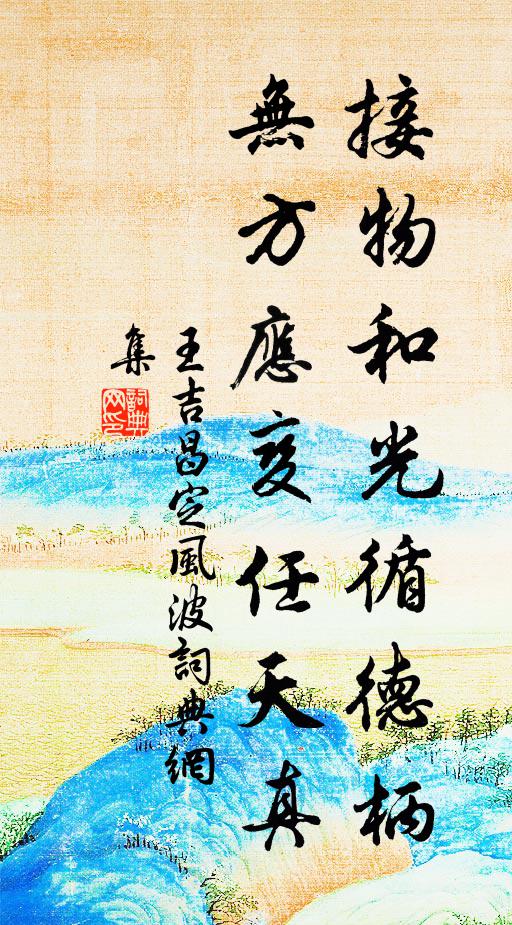 接物和光循德柄
無方應变任天真
王吉昌定風波詞典網
集
詞典網印